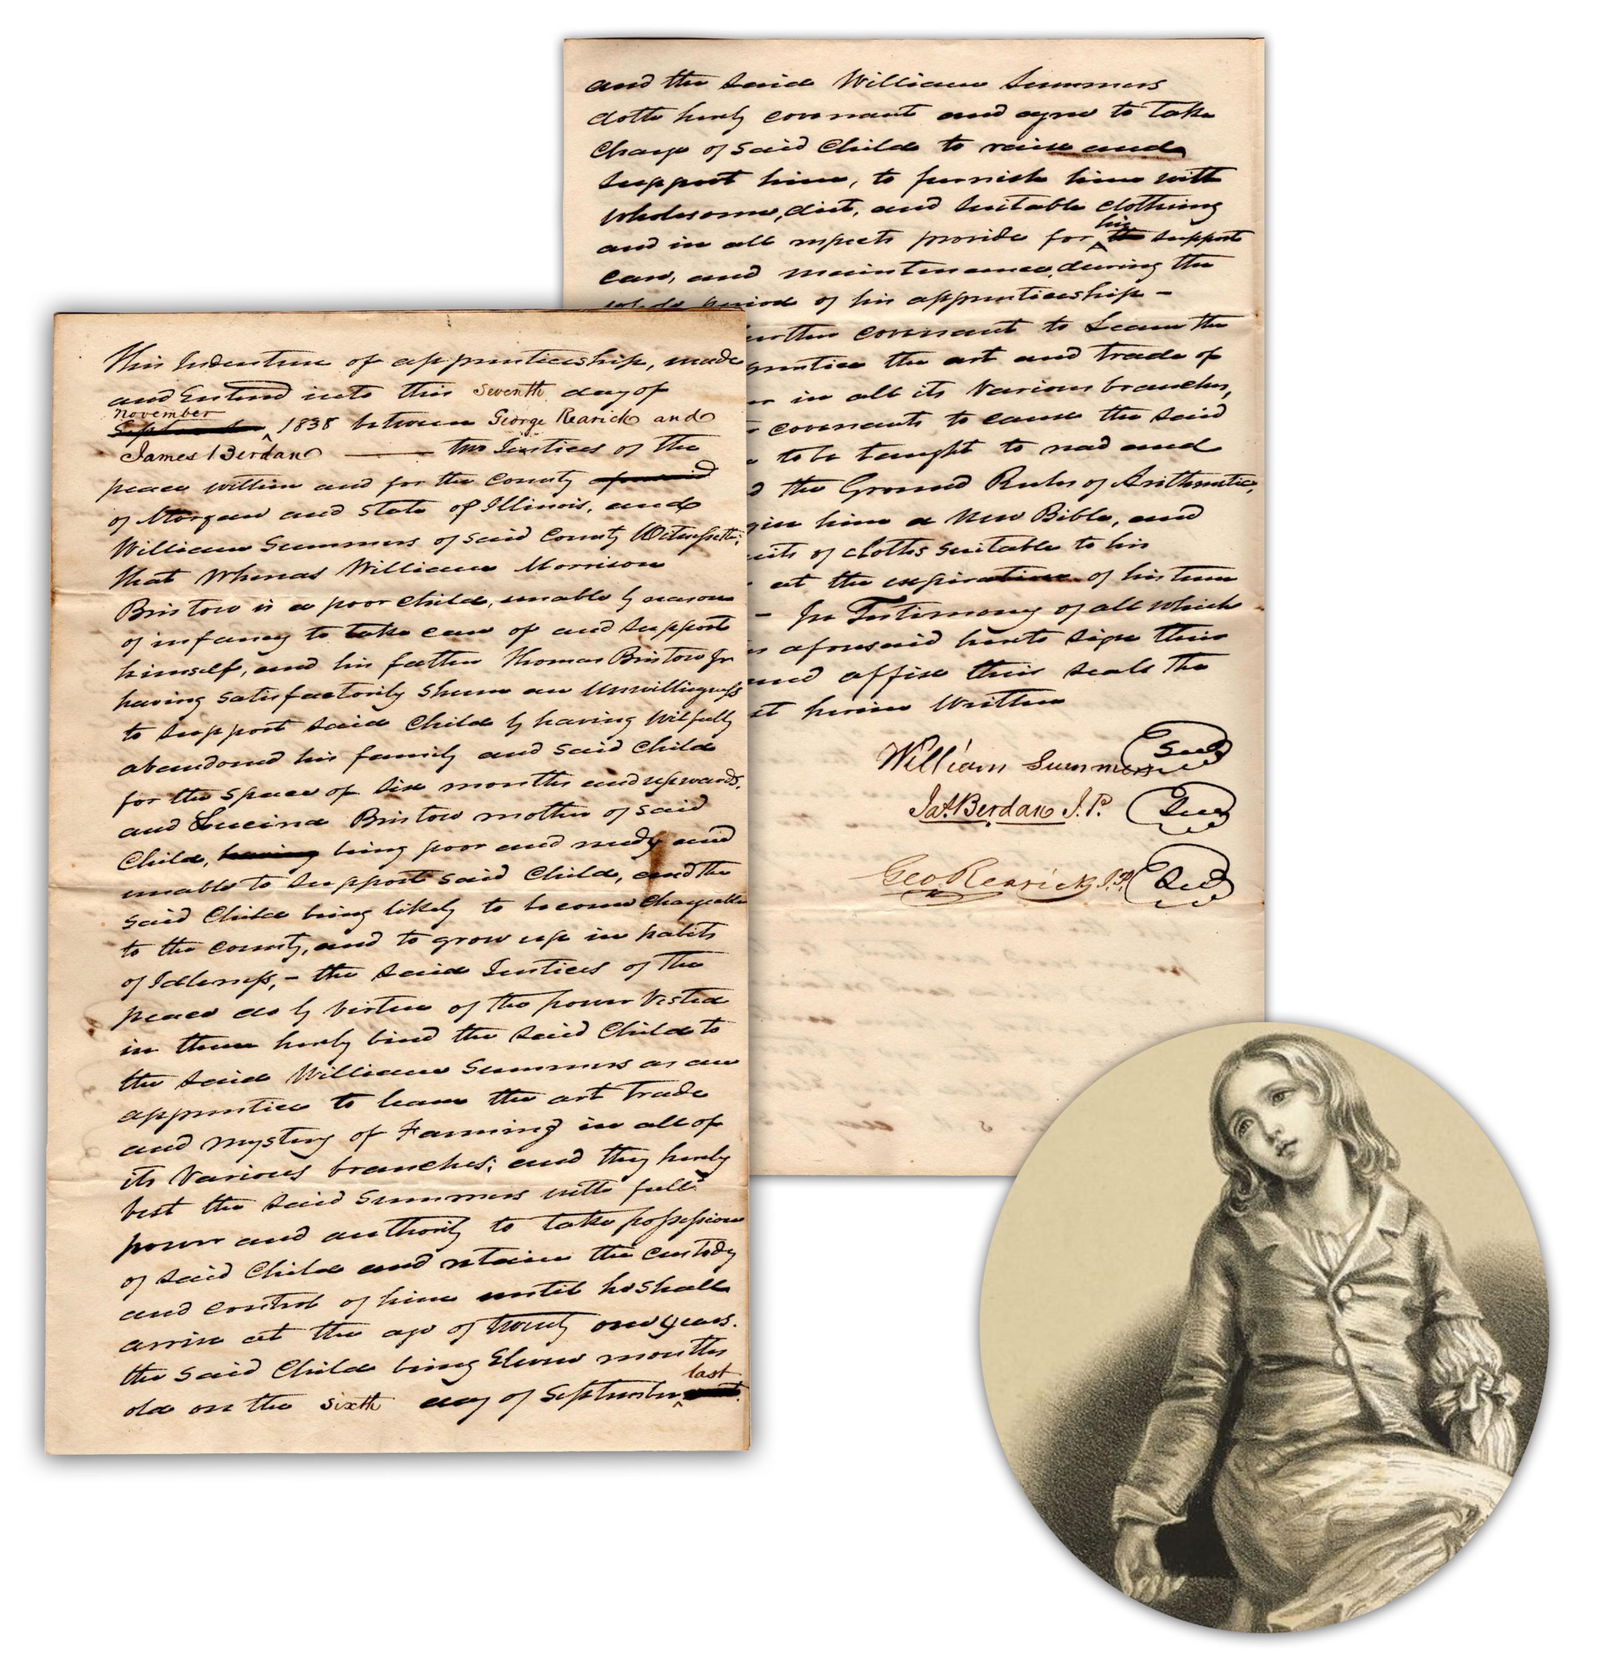 This Indenture of apprenticeship, made
and Entered into this seventh day of
November
September ^ 1838 between George Rearick and
James Berdan —— two Justices of the
peace within and for the County aforesaid
of Morgan and State of Illinois, and
William Summers of said County Witnesseth:
that Whereas William Morrison
Bristow is a poor child, unable by reason
of infancy to take care of and support
himself, and his father Thomas Bristow Jr
having satisfactorily shewn an Unwillingness
to support said Child by having Wilfully
abandoned his family and said Child
for the space of six months and upwards,
and Lucina Bristow mother of said
Child, having being poor and needy and
unable to support said Child, and the
said Child being likely to become chargeable
to the County, and to grow up in habits
of Idleness, – the said Justices of the
peace do by virtue of the power Vested
in them herby bind the said Child to
the said William Summers as an
apprentice to learn the art trade
and mystery of Farming in all of
its Various branches; and they herby
vest the said Summers with full
power and authority to take possession
of said Child and retain the custody
and control of him until he shall
arrive at the age of twenty one years.
the said Child being Eleven months
last
old on the sixth day of September ^
and the said William Summers
doth herby covenant and agree to take
Charge of said Child to raise and
support him, to furnish him with
wholesome, diet, and suitable clothing
his
and in all respects provide for ^ the support
care, and maintenance during the
whole period of his apprenticeship –
further covenant to Learn the
apprentice the art and trade of
in all its Various branches,
covenants to cause the said
to be taught to read and
the Ground Rules of Arithmetic,
give him a New Bible, and
suits of cloths suitable to his
at the expiration of his term
– In Testimony of all which
aforesaid hereto sign their
and affix their seals the
herein Written
William Summers Seal
Jas. Berdan J.P. Seal
Geo Rearick J.P. Seal